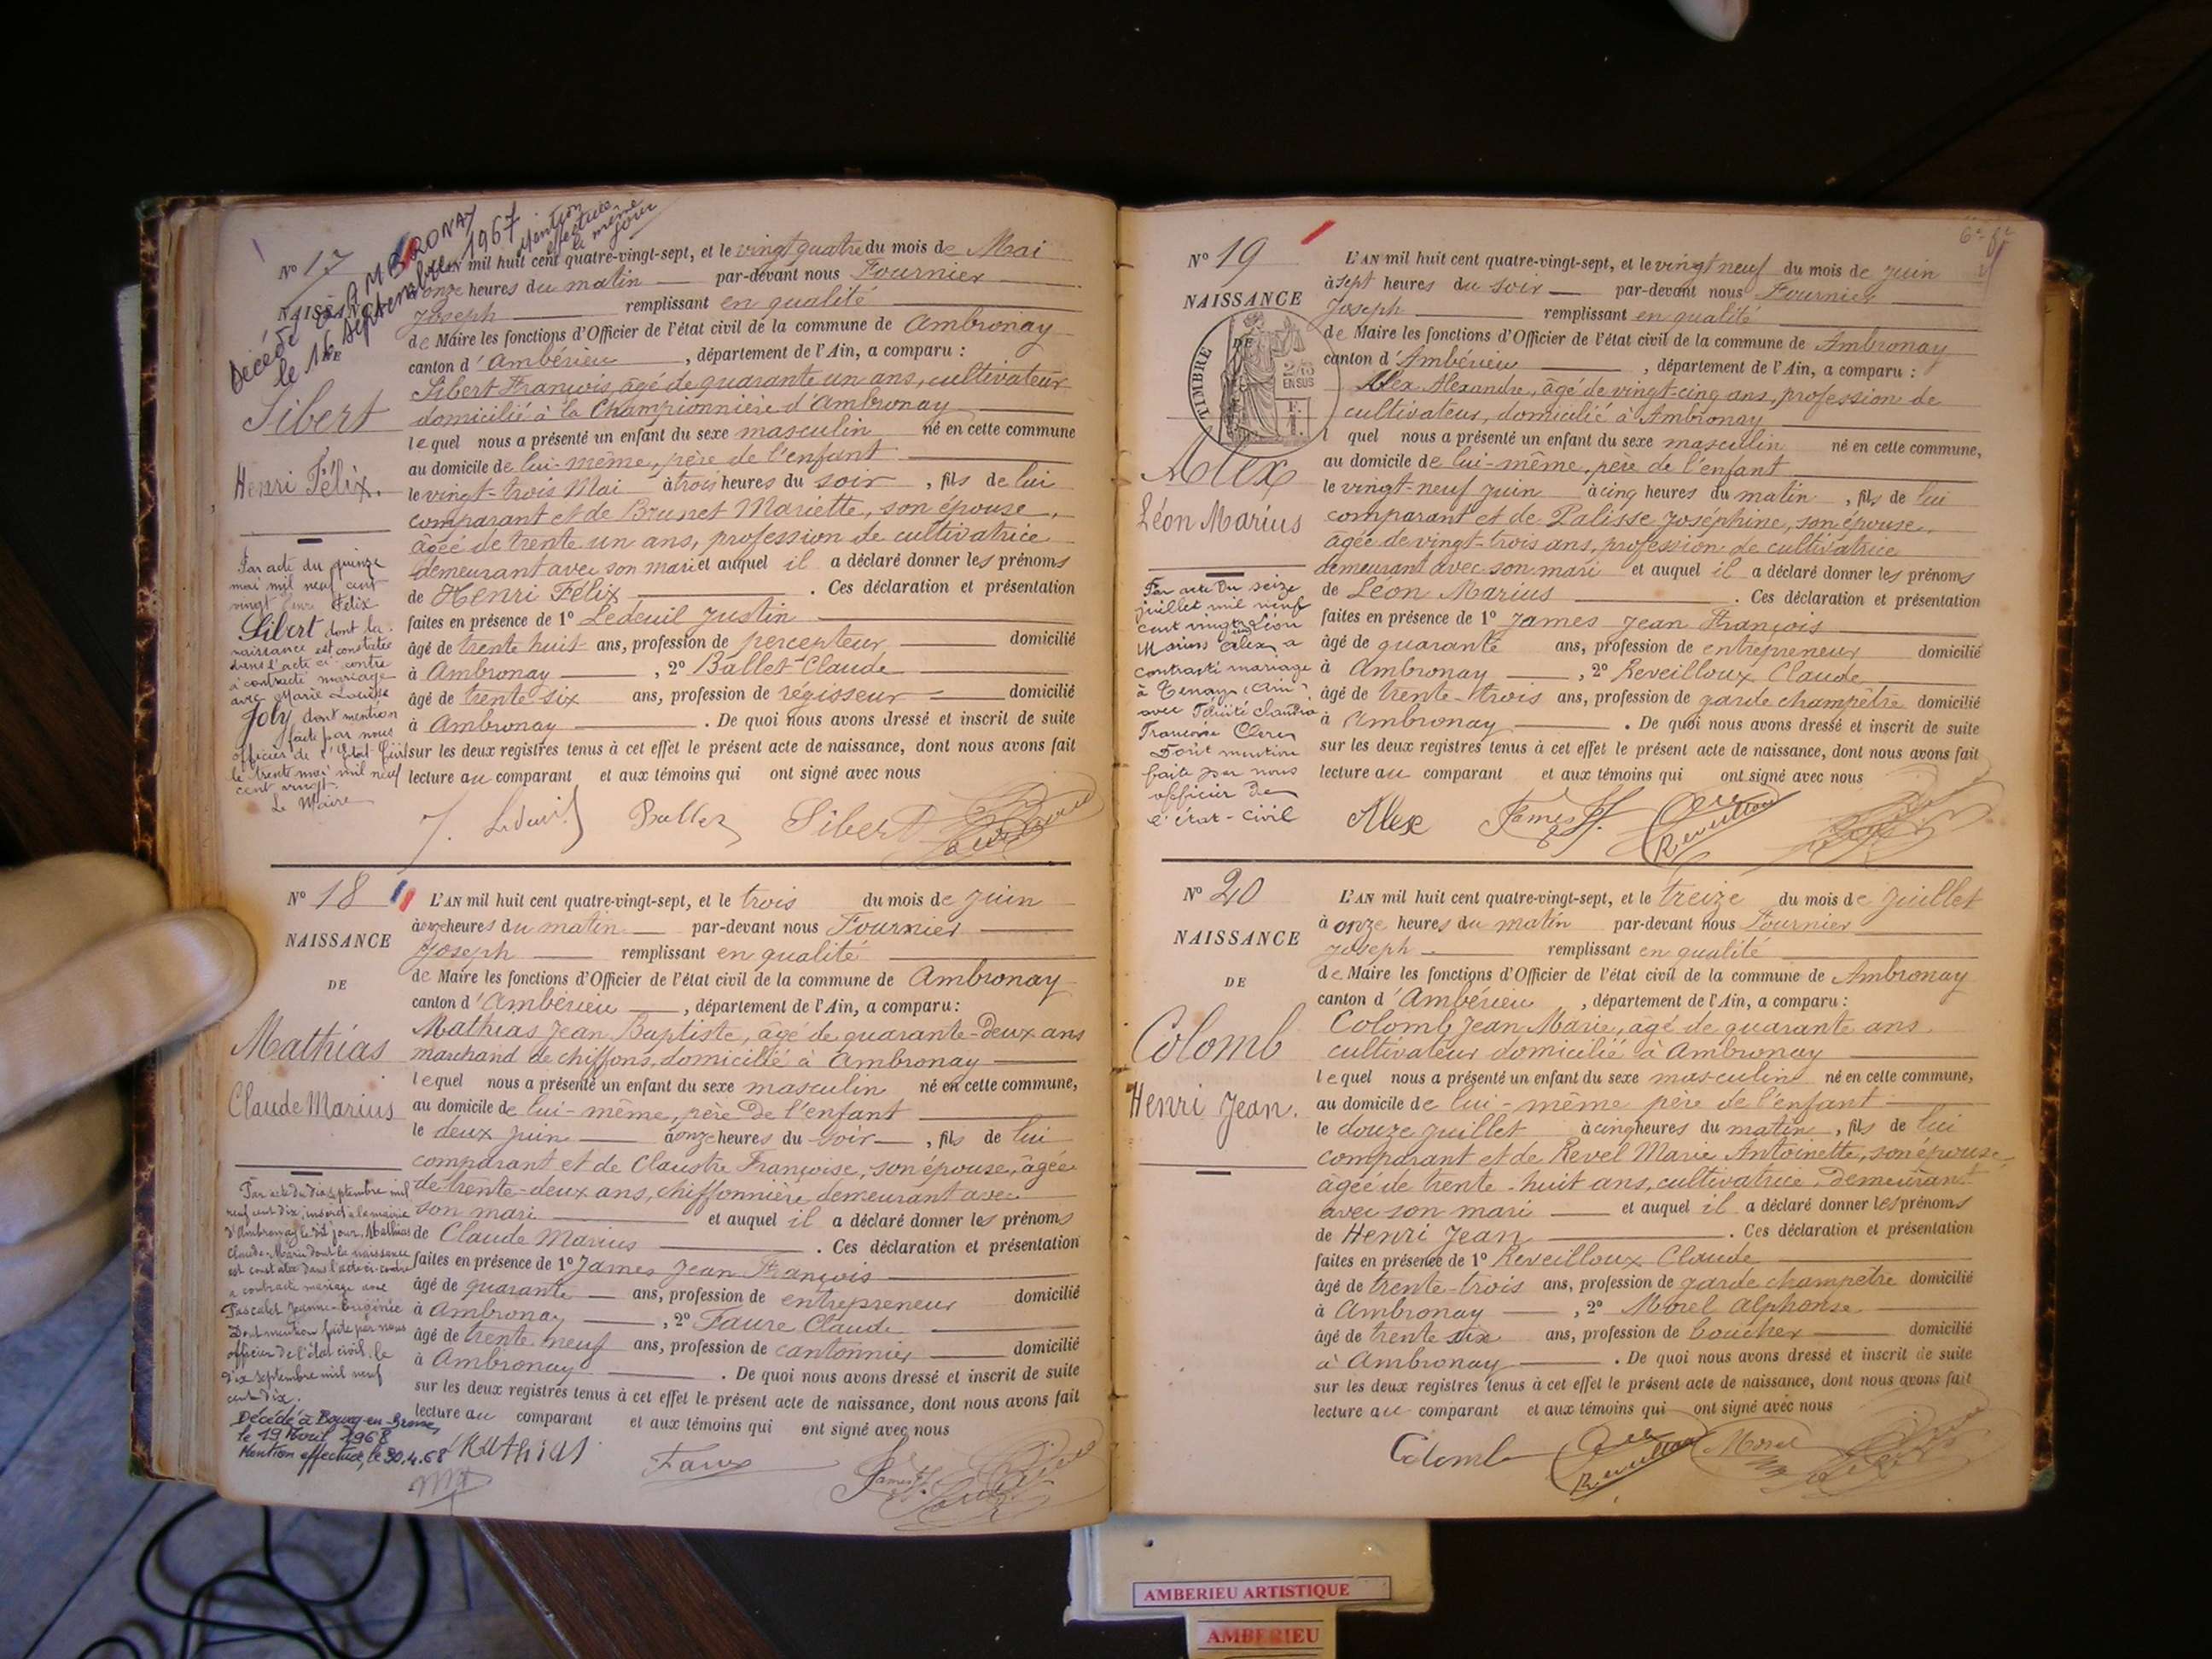 Décédé à AMBRONAY
le 16 Septembre 1967
Mention
effectuée
le même
jour
N° 17
NAISSANCE
DE
Sibert
Henri Félix.
Par acte du quinze
mai mil neuf cent
vingt Henri Félix
Sibert dont la
naissance est constatée
dans l'acte ci-contre
a contracté mariage
avec Marie Louise
Joly, dont mention
faite par nous
officier de l'Etat Civil
le trente mai mil neuf
cent vingt.
Le Maire
L'AN mil huit cent quatre-vingt-sept, et le vingt quatre du mois de Mai
à onze heures du matin par-devant nous Fournier
Joseph remplissant en qualité
de Maire les fonctions d'Officier de l'état civil de la commune de Ambronay
canton d'Ambérieu, département de l'Ain, a comparu :
Sibert François, âgé de quarante un ans, cultivateur
domicilié à la Championnière d'Ambronay
lequel nous a présenté un enfant du sexe masculin né en cette commune
au domicile de lui-même, père de l'enfant
le vingt-trois Mai à trois heures du soir, fils de lui
comparant et de Brunet Mariette, son épouse,
âgée de trente un ans, profession de cultivatrice
demeurant avec son mari et auquel il a déclaré donner les prénoms
de Henri Félix. Ces déclaration et présentation
faites en présence de 1° Ledeuil Justin
âgé de trente huit ans, profession de percepteur domicilié
à Ambronay, 2° Ballet Claude
âgé de trente six ans, profession de régisseur domicilié
à Ambronay. De quoi nous avons dressé et inscrit de suite
sur les deux registres tenus à cet effet le présent acte de naissance, dont nous avons fait
lecture au comparant et aux témoins qui ont signé avec nous
J. Ledeuil Ballet Sibert
N° 18
NAISSANCE
DE
Mathias
Claude Marius
Par acte du dix septembre mil
neuf cent dix, inscrit à la mairie
d'Ambronay le dit jour, Mathias
Claude-Marius dont la naissance
est constatée dans l'acte ci-contre
a contracté mariage avec
Pascalet Jeanne-Eugénie
Dont mention faite par nous
officier de l'état civil, le
dix septembre mil neuf
cent dix.
Décédé à Bourg-en-Bresse,
le 19 Avril 1968
Mention effectuée, le 30.4.68
L'AN mil huit cent quatre-vingt-sept, et le trois du mois de Juin
à onze heures du matin par-devant nous Fournier
Joseph remplissant en qualité
de Maire les fonctions d'Officier de l'état civil de la commune de Ambronay
canton d'Ambérieu, département de l'Ain, a comparu :
Mathias Jean Baptiste, âgé de quarante-deux ans
marchand de chiffons, domicilié à Ambronay
lequel nous a présenté un enfant du sexe masculin né en cette commune,
au domicile de lui-même, père de l'enfant
le deux juin à onze heures du soir, fils de lui
comparant et de Claustre Françoise, son épouse, âgée
de trente-deux ans, chiffonnière demeurant avec
son mari et auquel il a déclaré donner les prénoms
de Claude Marius. Ces déclaration et présentation
faites en présence de 1° James Jean François
âgé de quarante ans, profession de entrepreneur domicilié
à Ambronay, 2° Faure Claude
âgé de trente neuf ans, profession de cantonnier domicilié
à Ambronay. De quoi nous avons dressé et inscrit de suite
sur les deux registres tenus à cet effet le présent acte de naissance, dont nous avons fait
lecture au comparant et aux témoins qui ont signé avec nous
Mathias Faure James
N° 19
NAISSANCE
DE
TIMBRE
2/10
EN SUS
Alex
Léon Marius
Par acte du seize
juillet mil neuf
cent vingt un Léon
Marius Alex a
contracté mariage
à Tenay (Ain)
avec Félicité Claudia
Françoise Clerc
Dont mention
faite par nous
officier de
l'état-civil
L'AN mil huit cent quatre-vingt-sept, et le vingt neuf du mois de Juin
à sept heures du soir par-devant nous Fournier
Joseph remplissant en qualité
de Maire les fonctions d'Officier de l'état civil de la commune de Ambronay
canton d'Ambérieu, département de l'Ain, a comparu :
Alex Alexandre, âgé de vingt-cinq ans, profession de
cultivateur, domicilié à Ambronay
l quel nous a présenté un enfant du sexe masculin né en cette commune,
au domicile de lui-même, père de l'enfant
le vingt-neuf juin à cinq heures du matin, fils de lui
comparant et de Palisse Joséphine, son épouse,
âgée de vingt-trois ans, profession de cultivatrice
demeurant avec son mari et auquel il a déclaré donner les prénoms
de Léon Marius. Ces déclaration et présentation
faites en présence de 1° James Jean François
âgé de quarante ans, profession de entrepreneur domicilié
à Ambronay, 2° Reveilloux Claude
âgé de trente-trois ans, profession de garde champêtre domicilié
à Ambronay. De quoi nous avons dressé et inscrit de suite
sur les deux registres tenus à cet effet le présent acte de naissance, dont nous avons fait
lecture au comparant et aux témoins qui ont signé avec nous
Alex James Reveilloux
N° 20
NAISSANCE
DE
Colomb
Henri Jean.
L'AN mil huit cent quatre-vingt-sept, et le treize du mois de Juillet
à onze heures du matin par-devant nous Fournier
Joseph remplissant en qualité
de Maire les fonctions d'Officier de l'état civil de la commune de Ambronay
canton d'Ambérieu, département de l'Ain, a comparu :
Colomb Jean Marie, âgé de quarante ans
cultivateur domicilié à Ambronay
lequel nous a présenté un enfant du sexe masculin né en cette commune,
au domicile de lui-même père de l'enfant
le douze Juillet à cinq heures du matin, fils de lui
comparant et de Revel Marie Antoinette, son épouse,
âgée de trente-huit ans, cultivatrice, demeurant
avec son mari et auquel il a déclaré donner les prénoms
de Henri Jean. Ces déclaration et présentation
faites en présence de 1° Reveilloux Claude
âgé de trente-trois ans, profession de garde champêtre domicilié
à Ambronay, 2° Morel Alphonse
âgé de trente six ans, profession de boucher domicilié
à Ambronay. De quoi nous avons dressé et inscrit de suite
sur les deux registres tenus à cet effet le présent acte de naissance, dont nous avons fait
lecture au comparant et aux témoins qui ont signé avec nous
Colomb Reveilloux Morel
AMBERIEU ARTISTIQUE
AMBERIEU